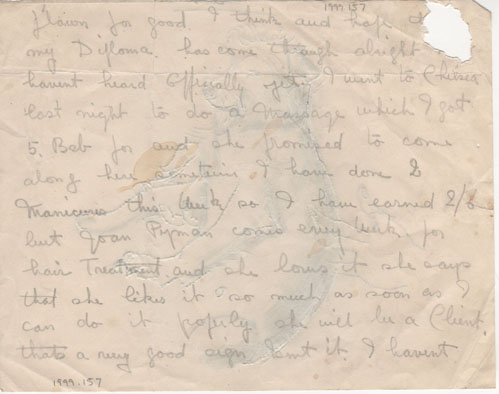 1999.157
flown for good I think and hope
my Diploma has come through alright
havent heard Officially yet. I went to Chelsea
last night to do a Massage which I got
5 Bob for and she promised to come
along here sometime I have done 2
Manicures this week so I have earned 2/6
but Joan Pryman comes every week for
hair Treatment and she loves it she says
that she likes it so much as soon as I
can do it properly she will be a Client
thats a very good sign Isnt it. I havent
1999.157